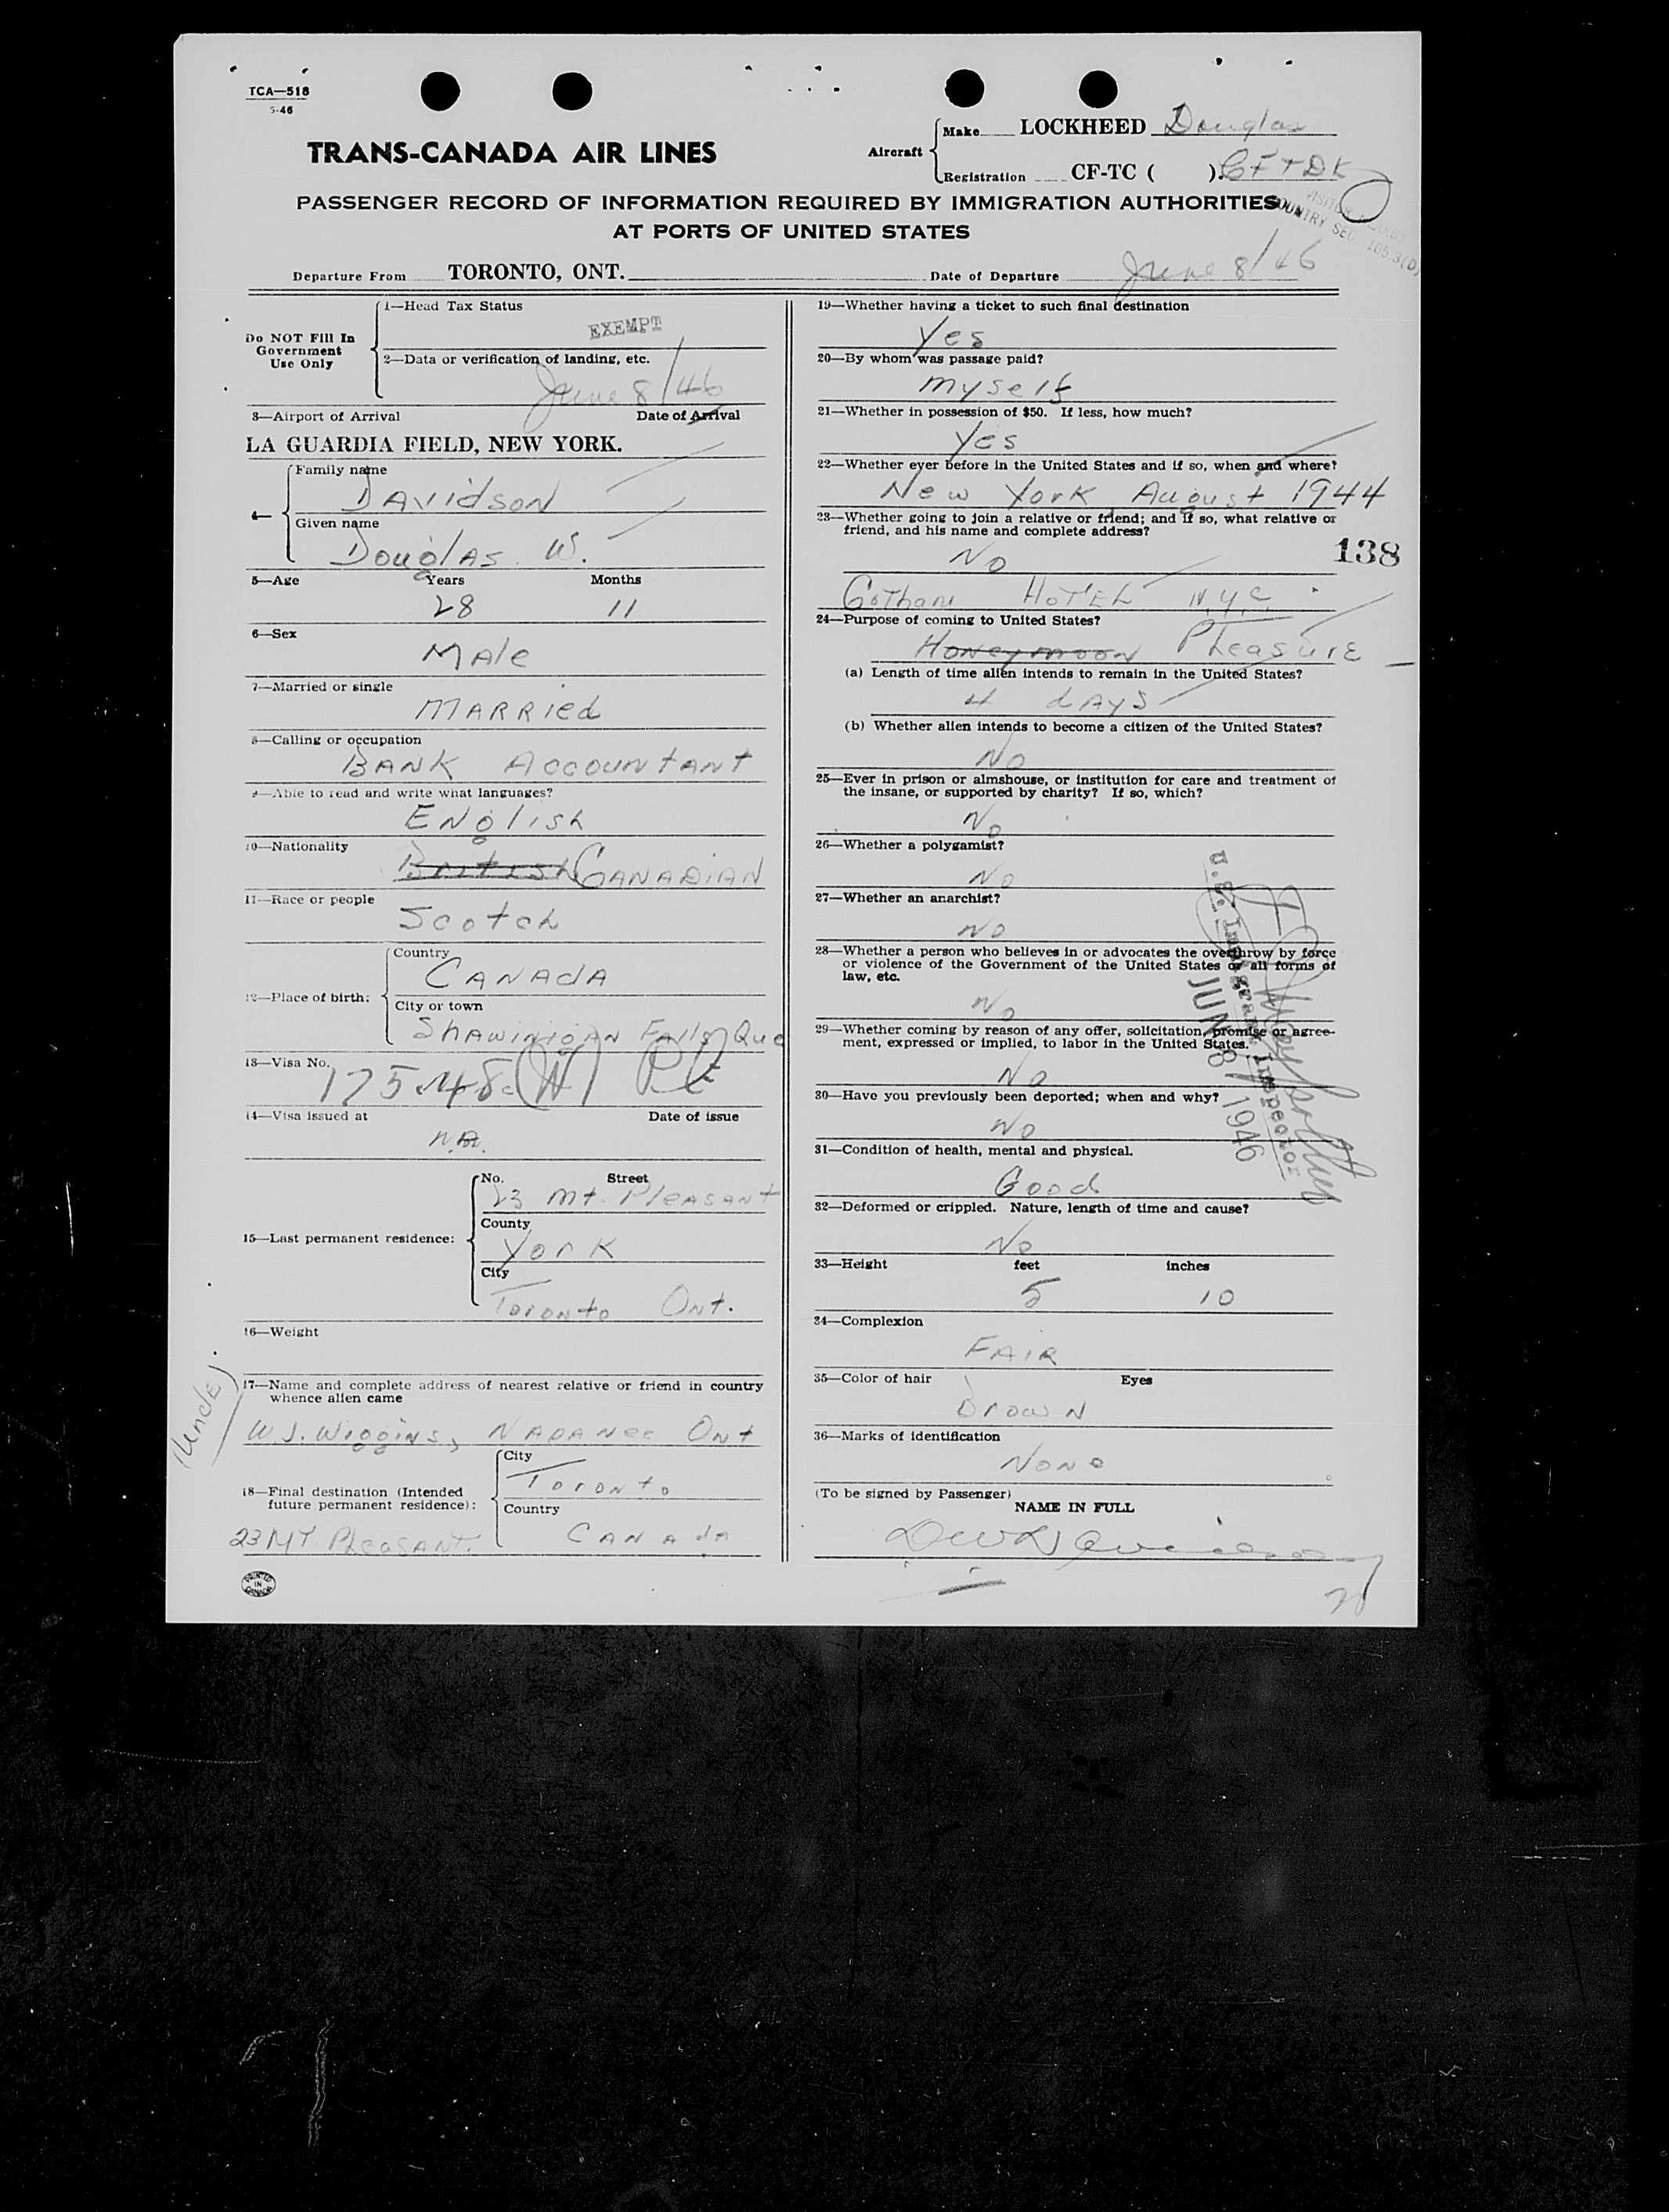 TCA—518
5-46
TRANS-CANADA AIR LINES
Aircraft
Make LOCKHEED Douglas
Registration CF-TC ( ). CFTDK
PASSENGER RECORD OF INFORMATION REQUIRED BY IMMIGRATION AUTHORITIES
AT PORTS OF UNITED STATES
Departure From TORONTO, ONT. Date of Departure June 8/46
Do NOT Fill In
Government
Use Only
1—Head Tax Status
EXEMPT
2—Data or verification of landing, etc.
June 8/46
3—Airport of Arrival Date of Arrival
LA GUARDIA FIELD, NEW YORK.
4—
Family name
Davidson
Given name
Douglas W.
5—Age Years Months
28 11
6—Sex
Male
7—Married or single
Married
8—Calling or occupation
Bank Accountant
9—Able to read and write what languages?
English
10—Nationality
British Canadian
11—Race or people
Scotch
12—Place of birth:
Country
Canada
City or town
Shawinigan Falls Que
13—Visa No.
14—Visa issued at Date of issue
15—Last permanent residence:
No. Street
23 Mt. Pleasant
County
York
City
Toronto Ont.
16—Weight
17—Name and complete address of nearest relative or friend in country
whence alien came
(Uncle)
W.J. Wiggins, Napanee Ont
18—Final destination (Intended
future permanent residence):
City
Toronto
Country
Canada
23 MT Pleasant.
PRINTED
IN
CANADA
19—Whether having a ticket to such final destination
Yes
20—By whom was passage paid?
myself
21—Whether in possession of $50. If less, how much?
Yes
22—Whether ever before in the United States and if so, when and where?
New York August 1944
23—Whether going to join a relative or friend; and if so, what relative or
friend, and his name and complete address?
138
No
Gotham Hotel N.Y.C.
24—Purpose of coming to United States?
Honeymoon Pleasure
(a) Length of time alien intends to remain in the United States?
4 days
(b) Whether alien intends to become a citizen of the United States?
No
25—Ever in prison or almshouse, or institution for care and treatment of
the insane, or supported by charity? If so, which?
No
26—Whether a polygamist?
No
27—Whether an anarchist?
No
28—Whether a person who believes in or advocates the overthrow by force
or violence of the Government of the United States or all forms of
law, etc.
No
29—Whether coming by reason of any offer, solicitation, promise or agree-
ment, expressed or implied, to labor in the United States.
No
30—Have you previously been deported; when and why?
No
31—Condition of health, mental and physical.
Good
32—Deformed or crippled. Nature, length of time and cause?
No
33—Height feet inches
5 10
34—Complexion
Fair
35—Color of hair Eyes
Brown
36—Marks of identification
None
(To be signed by Passenger)
NAME IN FULL
DW Davidson
U.S. Immigrant Inspector
JUN 8 1946